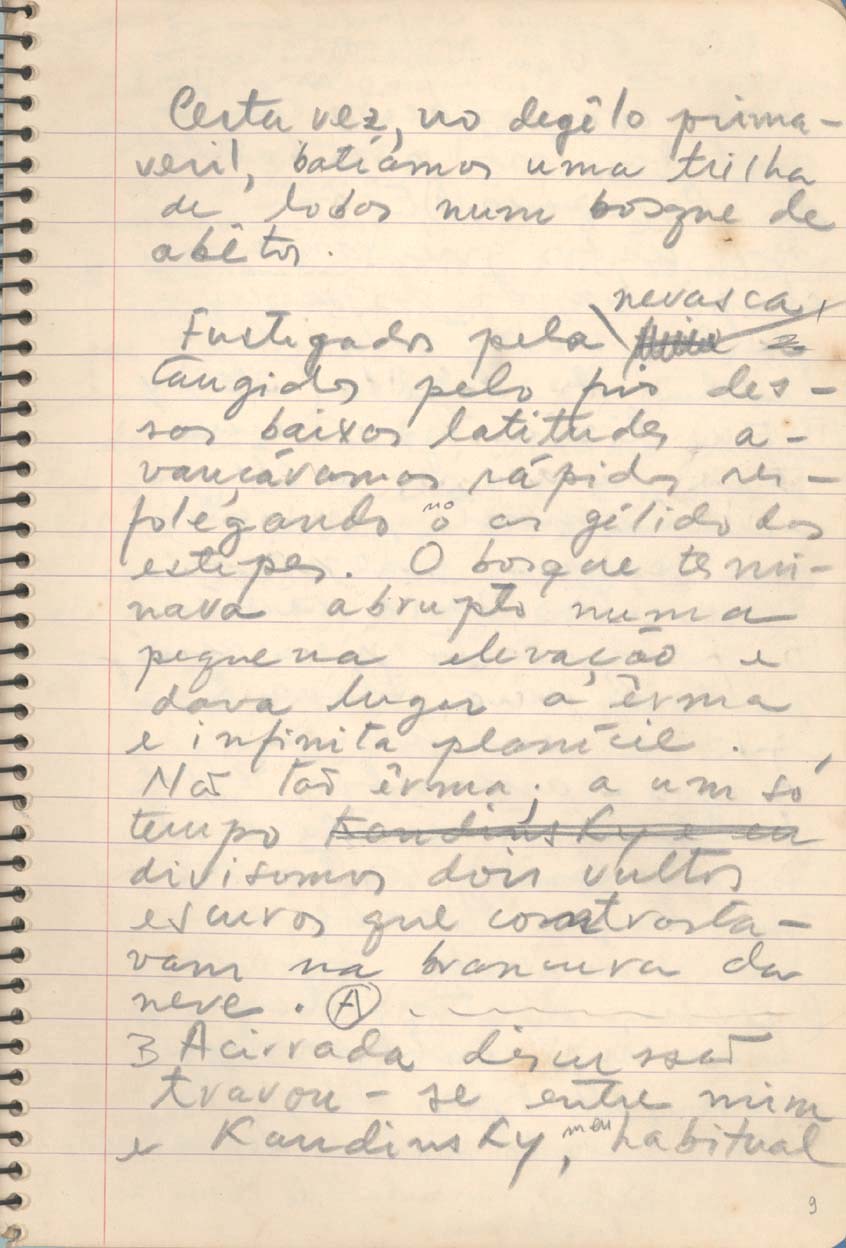 Certa vez, no degêlo prima-
veril, batíamos uma trilha
de lobos num bosque de
abêtos.
nevasca,
Fustigados pela
tangidos pelo frio des-
sas baixas latitudes a-
vançávamos rápidos res-
folegando no o ar gélido das
estepes. O bosque termi-
nava abrupto numa
pequena elevação e
dava lugar a êrma
e infinita planície.
Não tão êrma; a um só
tempo Kandinsky e eu
divisamos dois vultos
escuros que contrasta-
vam na brancura da
neve. A
3 Acirrada discussão
travou-se entre mim
e Kandinsky, meu habitual
9